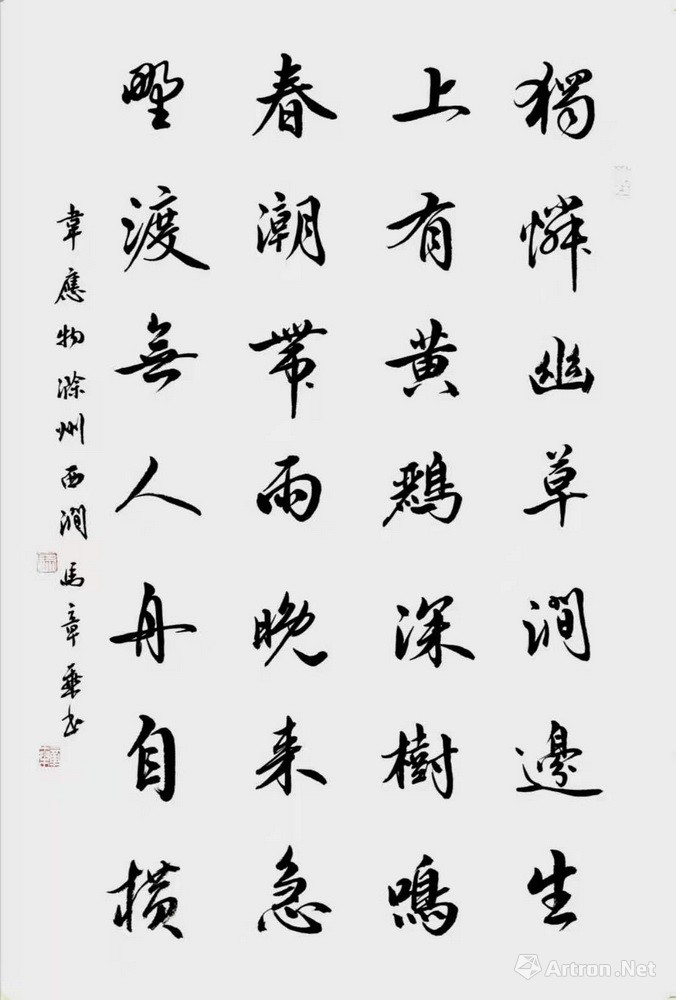 獨憐幽草澗邊生
上有黄鸝深樹鳴
春潮帶雨晚来急
野渡無人舟自橫
韋應物滁州西澗 馬章書
Artron.Net